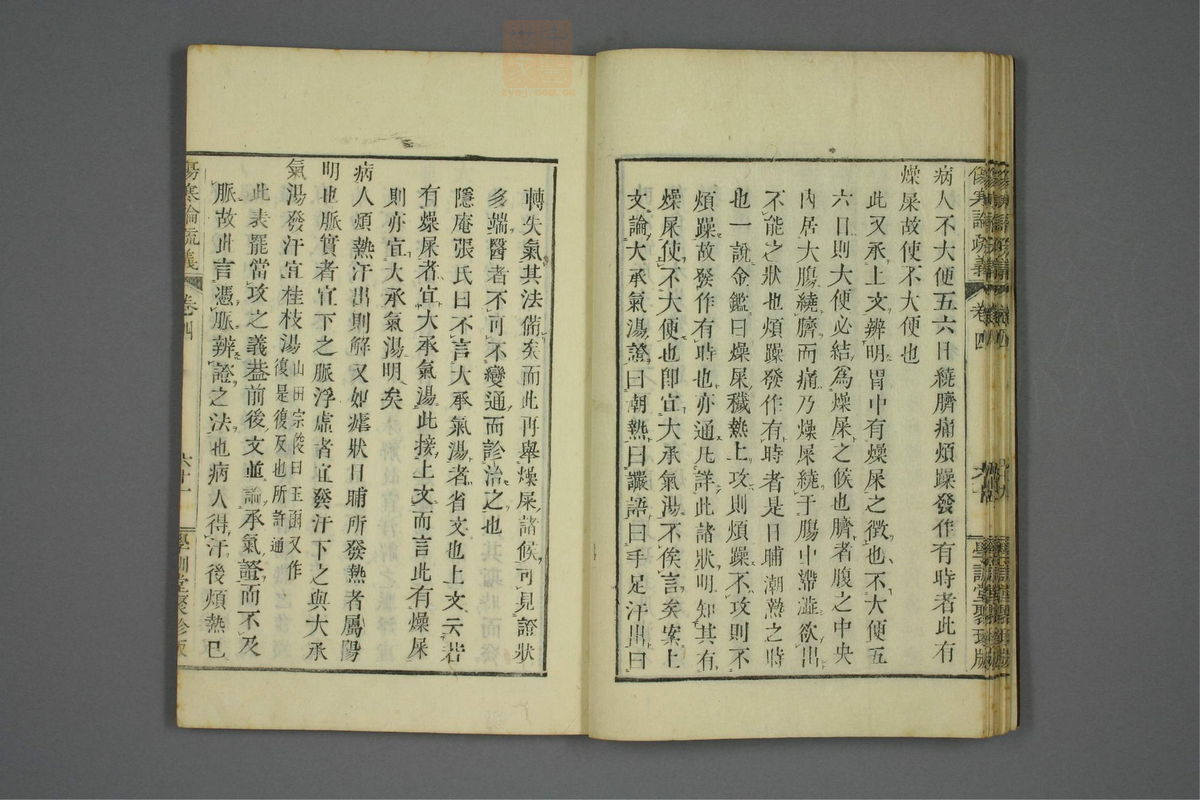 病人不大便五六日繞臍痛煩躁發作有時者此有
燥屎故使不大便也
此又承上文辨明胃中有燥屎之徴也不大便五
六日則大便必結爲燥屎之候也臍者腹之中央
內居大腸繞臍而痛乃燥屎繞于腸中滯澁欲出
不能之狀也煩躁發作有時者是日晡潮熱之時
也一說金鑑曰燥屎穢熱上攻則煩躁不攻則不
煩躁故發作有時也亦通凡詳此諸狀明知其有
燥屎使不大便也卽宜大承氣湯不俟言矣案上
文論大承氣湯證曰潮熱曰讝語曰手足汗出曰
轉失氣其法備矣而此再舉燥屎諸候可見證狀
多端醫者不可不變通而診治之也
隱庵張氏曰不言大承氣湯者省文也上文云若
有燥屎者宜大承氣湯此接上文而言此有燥屎
則亦宜大承氣湯明矣
病人煩熱汗出則解又如瘧狀日晡所發熱者屬陽
明也脈實者宜下之脈浮虛者宜發汗下之與大承
氣湯發汗宜桂枝湯
山田宗俊曰玉函又作
復是復反也所許通
此表罷當攻之義葢前後文並論承氣證而不及
脈故此言憑脈辨證之法也病人得汗後煩熱巳
傷寒論疏義
卷四
六十一
學訓堂聚珍版